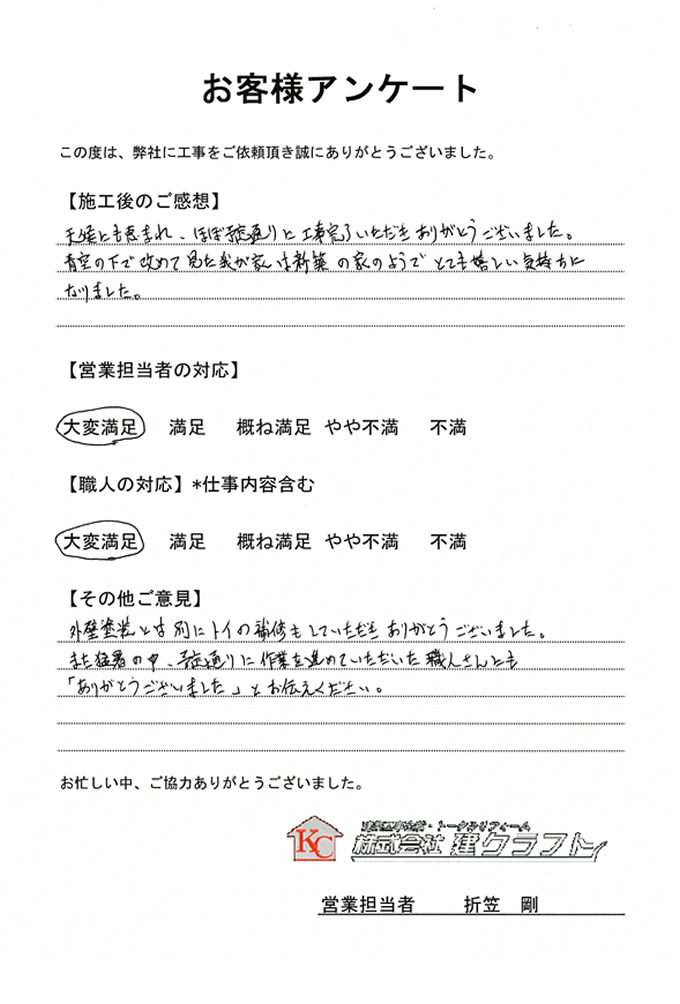 お客様アンケート
この度は、弊社に工事をご依頼頂き誠にありがとうございました。
【施工後のご感想】
天候にも恵まれ、ほぼ予定通りに工事完了いただきありがとうございました。
青空の下で改めて見た我が家は新築の家のようでとても嬉しい気持ちに
なりました。
【営業担当者の対応】
大変満足 満足 概ね満足 やや不満 不満
【職人の対応】*仕事内容含む
大変満足 満足 概ね満足 やや不満 不満
【その他ご意見】
外壁塗装とは別にトイの補修もしていただきありがとうございました。
また猛暑の中、予定通りに作業を進めていただいた職人さんにも
「ありがとうございました」とお伝えください。
お忙しい中、ご協力ありがとうございました。
KC
・トータルリフォーム
株式会社 建クラフト
営業担当者 折笠 剛